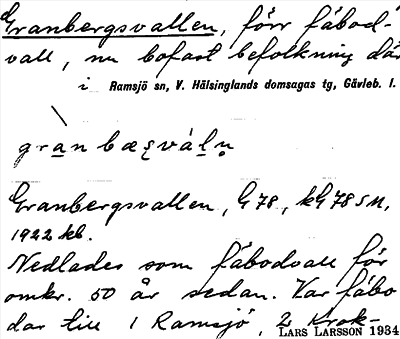 Granbergsvallen, förr fäbod-
vall, nu bofast befolkning där
i Ramsjö sn, V. Hälsinglands domsagas tg, Gävleb. l.
Granbergsvallen, G 78, kG 78 SM,
1922 kb.
Nedlades som fäbodvall för
omkr. 50 år sedan. Var fäbo
dar till 1 Ramsjö, 2 Krok-
LARS LARSSON 1934